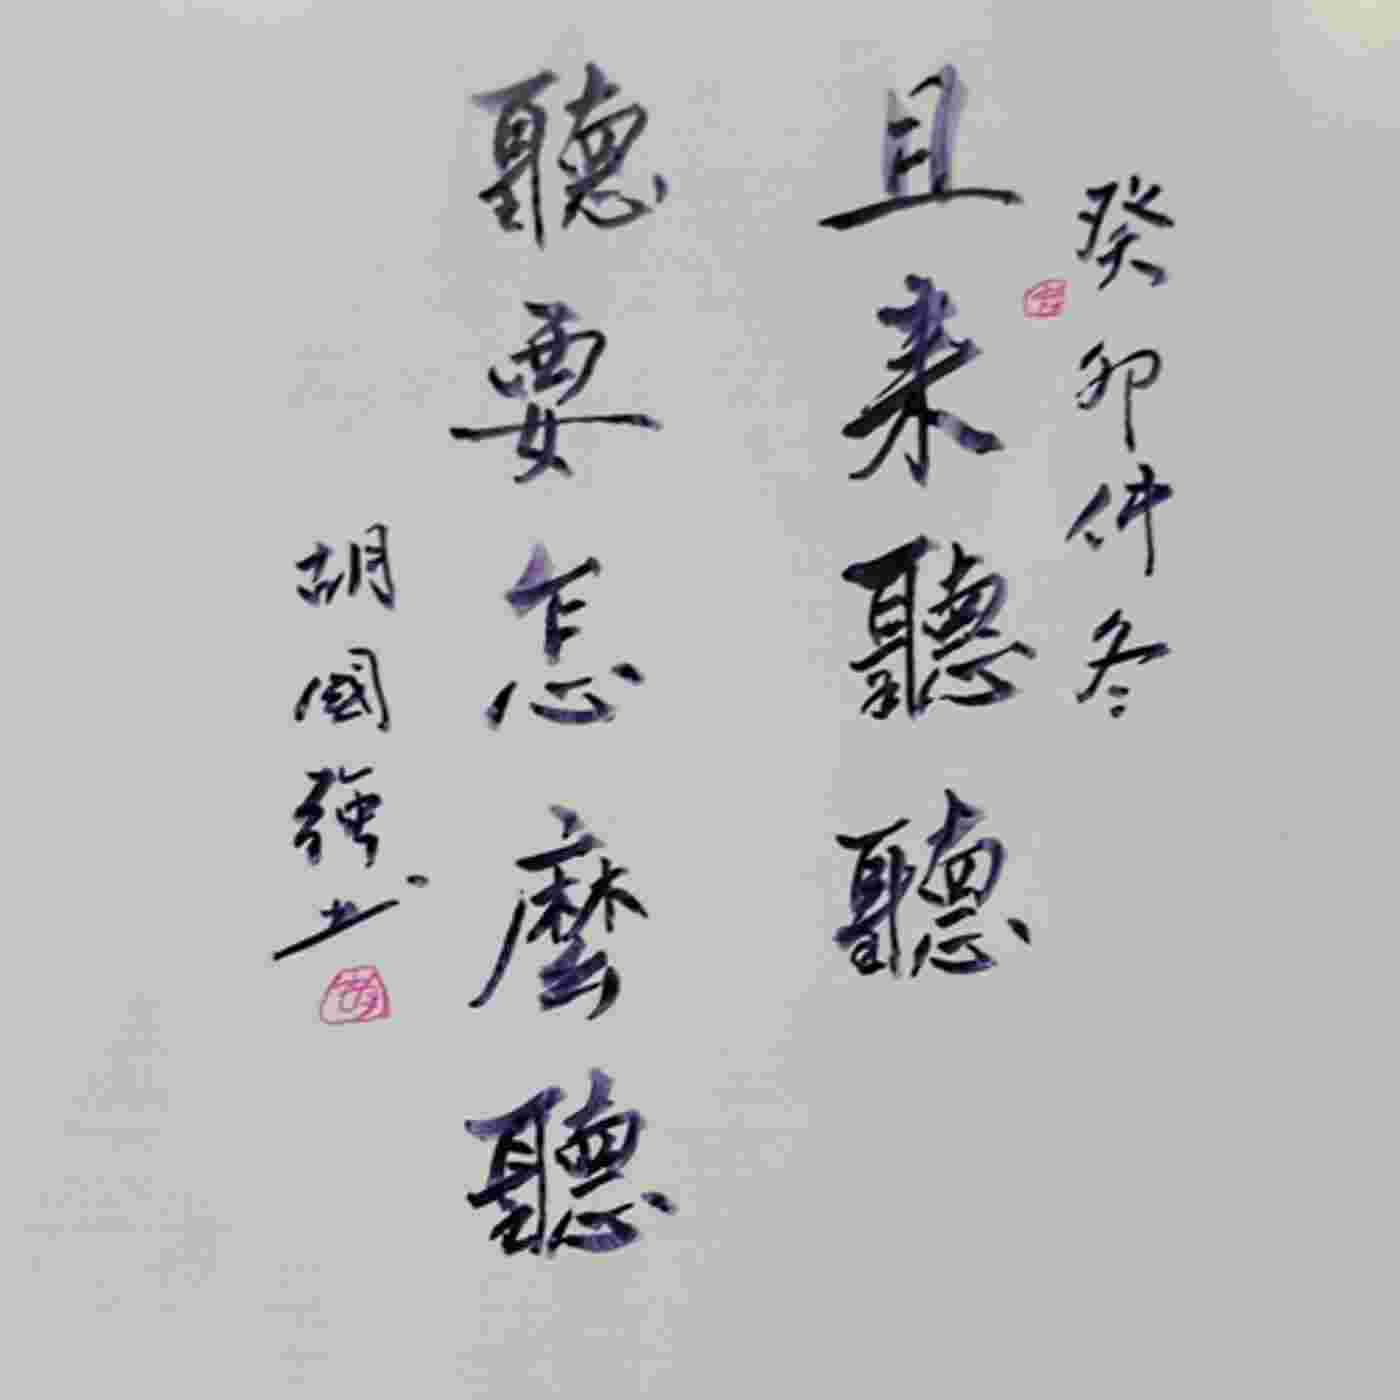 癸卯仲冬
且来聽聽
聽要怎麼聽
胡國強书